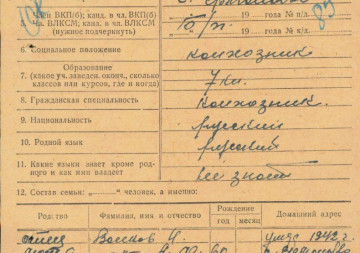 Член ВКП(б); канд. в чл. ВКП(б)
чл. ВЛКСМ; канд. в чл. ВЛКСМ
(нужное подчеркнуть)
194 года № п/д.
194 года № п/д.
6. Социальное положение колхозник
7. Образование
(какое уч. заведен. оконч., сколько
классов или курсов, где и когда) 7 кл.
8. Гражданская специальность колхозник.
9. Национальность русский
10. Родной язык русский
11. Какие языки знает кроме род-
ного и как ими владеет не знает
12. Состав семьи: „——“ человек, а именно:
Родство Фамилия, имя и отчество Рождение Домашний адрес
год месяц
отец Волков И. умер 1942 г.